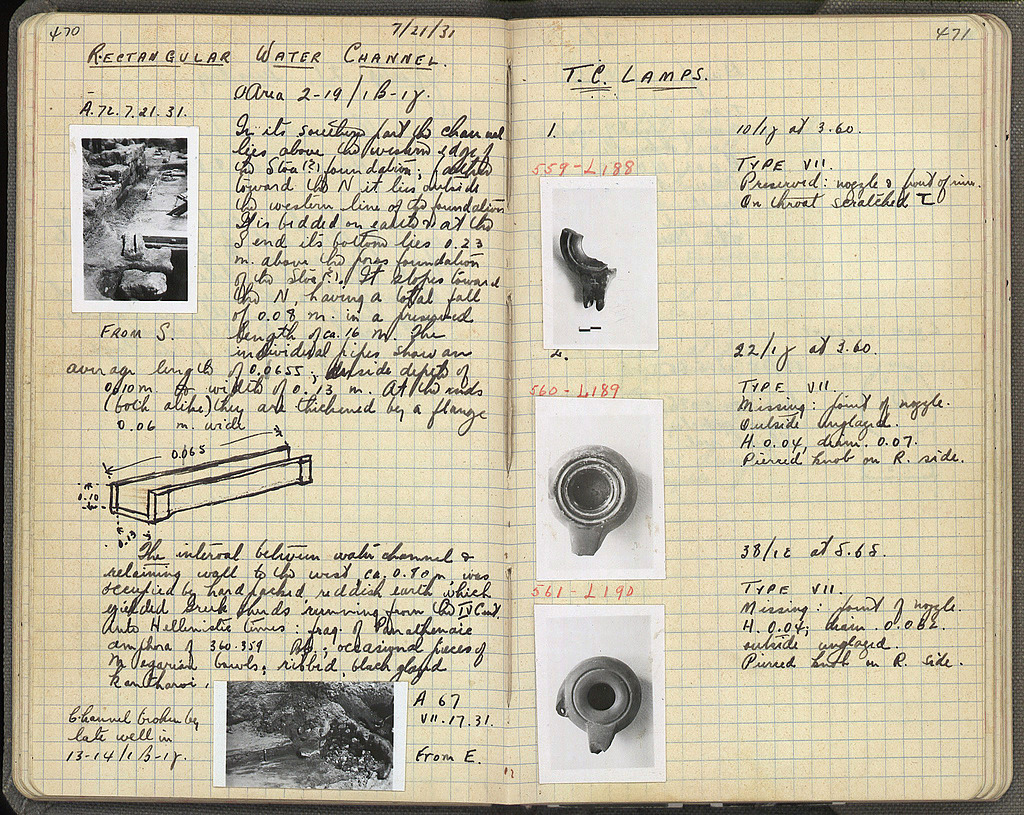 470
7/21/31
RECTANGULAR WATER CHANNEL.
A.72.7.21.31.
Area 2-19/1B-1γ.
In its southern part the channel
lies above the western edge of
the Stoa(?) foundation; farther
toward the N it lies outside
the western line of the foundation
It is bedded on earth & at the
S end its bottom lies 0.23
m. above the poros foundation
of the Stoa(?). It slopes toward
the N, having a total fall
of 0.08 m. in a preserved
length of ca. 16 m. The
individual pipes show an
average length of 0.0655; inside depth of
0.10 m. width of 0.13 m. At the ends
(both alike) they are thickened by a flange
0.06 m. wide
0.065
0.10
0.13
The interval between water channel &
retaining wall to the west, ca. 0.80 m, was
occupied by hard packed reddish earth which
yielded Greek sherds running from the IV Cent.
into Hellenistic times: frag. of Panathenaic
amphora of 360-359 occasional pieces of
Megarian bowls, ribbed, black glazed
kantharoi.
FROM S.
Channel broken by
late well in
13-14/1B-1γ.
A 67
VII.17.31.
From E.
471
T.C. LAMPS.
1.
10/1γ at 3.60.
559-L188
TYPE VII.
Preserved: nozzle & part of rim.
On throat scratched
2.
22/1γ at 3.60.
560-L189
TYPE VII.
Missing: point of nozzle.
Outside unglazed.
H. 0.04, diam. 0.07.
Pierced knob on R. side.
38/1E at 5.65.
561-L190
TYPE VII.
Missing: point of nozzle.
H. 0.04, diam. 0.062.
outside unglazed.
Pierced knob on R. side.